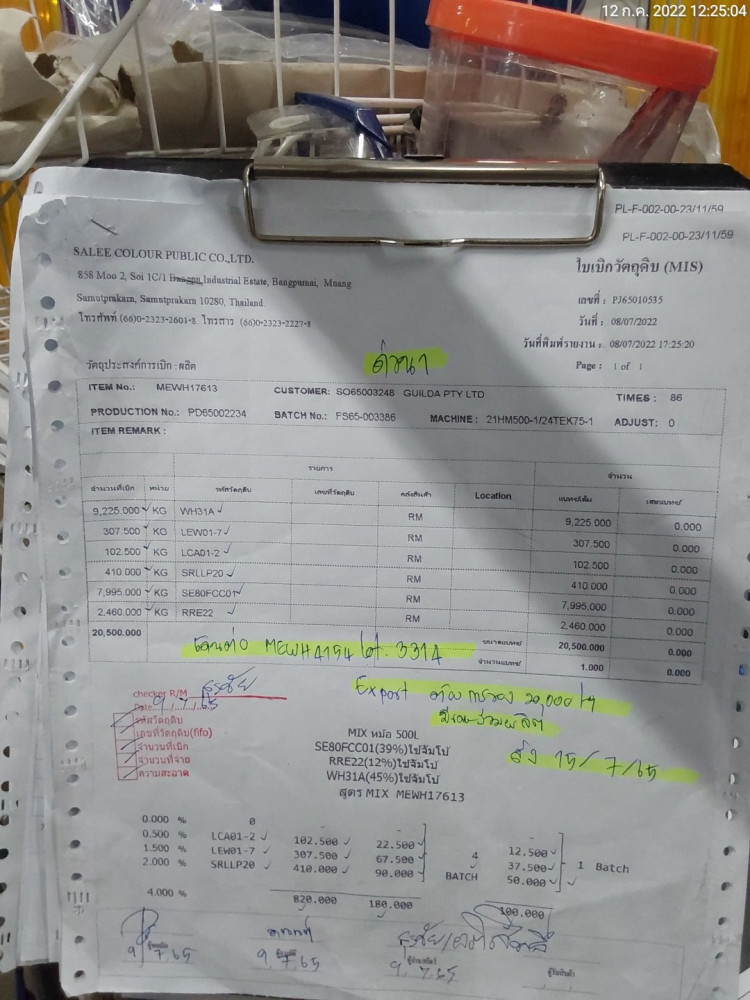 12 ก.ค. 2022 12:25:04
PL-F-002-00-23/11/59
PL-F-002-00-23/11/59
SALEE COLOUR PUBLIC CO.,LTD.
ใบเบิกวัตถุดิบ (MIS)
858 Moo 2, Soi 1C/1 Bangpu Industrial Estate, Bangpumai, Muang
Samutprakarn, Samutprakarn 10280, Thailand.
เลขที่ : PJ65010535
โทรศัพท์ (66)0-2323-2601-8 โทรสาร (66)0-2323-2227-8
วันที่ : 08/07/2022
วันที่พิมพ์รายงาน : 08/07/2022 17:25:20
วัตถุประสงค์การเบิก : ผลิต
Page : 1 of 1
ITEM No.: MEWH17613 CUSTOMER: SO65003248 GUILDA PTY LTD TIMES : 86
PRODUCTION No.: PD65002234 BATCH No.: FS65-003386 MACHINE : 21HM500-1/24TEK75-1 ADJUST: 0
ITEM REMARK :
รายการ จำนวน
จำนวนที่เบิก หน่วย รหัสวัตถุดิบ เลขที่วัตถุดิบ คลังสินค้า Location แบทช์เต็ม เศษแบทช์
9,225.000 KG WH31A RM 9,225.000 0.000
307.500 KG LEW01-7 RM 307.500 0.000
102.500 KG LCA01-2 RM 102.500 0.000
410.000 KG SRLLP20 RM 410.000 0.000
7,995.000 KG SE80FCC01 RM 7,995.000 0.000
2,460.000 KG RRE22 RM 2,460.000 0.000
20,500.000 ขนาดแบทช์ 20,500.000 0.000
จำนวนแบทช์ 1.000 0.000
MEWH4154 lot. 331A
checker R/M
Date 9/7/65
รหัสวัตถุดิบ
เลขที่วัตถุดิบ(fifo)
จำนวนที่เบิก
จำนวนที่จ่าย
ความสะอาด
Export 20,000
ส่ง 15/7/65
MIX หม้อ 500L
SE80FCC01(39%)ใช่จัมโบ้
RRE22(12%)ใช่จัมโบ้
WH31A(45%)ใช่จัมโบ้
สูตร MIX MEWH17613
0.000 % 0 - - -
0.500 % LCA01-2 102.500 22.500 12.500
1.500 % LEW01-7 307.500 67.500 4 37.500 1 Batch
2.000 % SRLLP20 410.000 90.000 BATCH 50.000
4.000 % 820.000 180.000 100.000
9 7,65 9 7,65 9 7.65